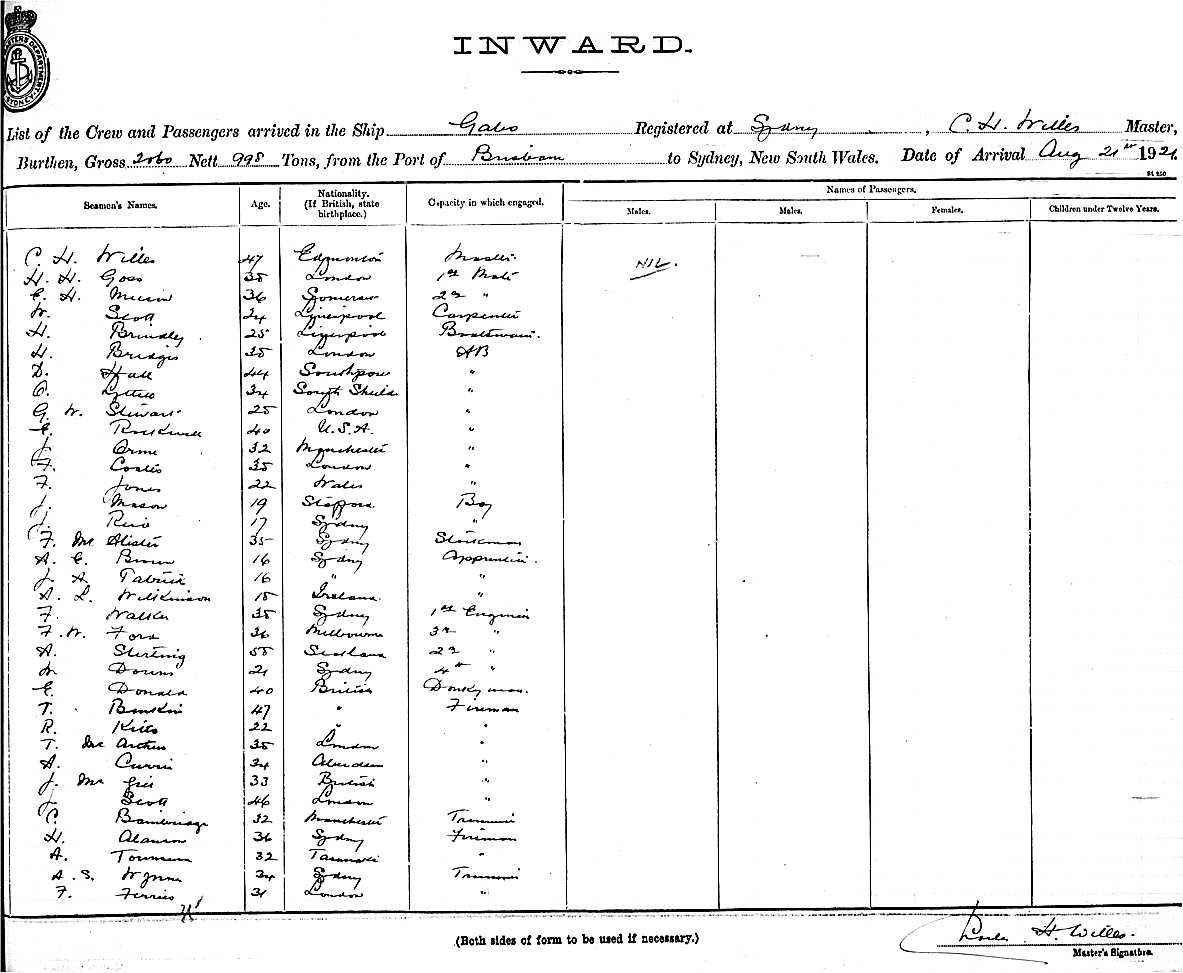 INWARD.
List of the Crew and Passengers arrived in the Ship Gabo Registered at Sydney, C. H. Willes Master,
Burthen, Gross 2060 Nett 998 Tons, from the Port of Brisbane to Sydney, New South Wales. Date of Arrival Aug 21st 1921
Names of Passengers.
Seamen's Names. Age. Nationality. (If British, state birthplace.) Capacity in which engaged. Males. Males. Females. Children under Twelve Years.
C. H. Willes 47 Edmonton Master NIL.
H. H. Goss 35 London 1st Mate
C. H. 36 Somerset 2nd "
W. Scott 34 Liverpool Carpenter
H. Brindley 25 Liverpool Boatswain.
H. Bridges 35 London AB
D. Hall 44 "
34 South Shields "
G. W. Stewart 25 London "
40 U.S.A. "
J. Orme 32 Manchester "
F. Coates 35 London "
F. Jones 22 Wales "
J. Mason 19 Stafford Boy
J. Reid 17 Sydney "
F. Mc Alister 35 Sydney
A. E. Brown 16 Sydney Apprentice.
J. A. 16 " "
A. L. Wilkinson 15 Ireland. "
F. Walker 35 Sydney 1st Engineer
F. W. Ford 36 Melbourne 3rd "
A. Sterling 55 Scotland 2nd "
Downs 21 Sydney 4th "
E. Donald 40 British Donkeyman.
T. 47 " Fireman
R. 22 " "
T. Mc 35 London "
A. Currie 34 Aberdeen "
J. Mc 33 British "
J. Scott 46 London "
C. Bainbridge 32 Manchester Trimmer
H. 36 Sydney Fireman
A. 32 "
A. S. Wynne 34 Sydney Trimmer
F. Ferries 31 London "
(Both sides of form to be used if necessary.)
H. Willes.
Master's Signature.